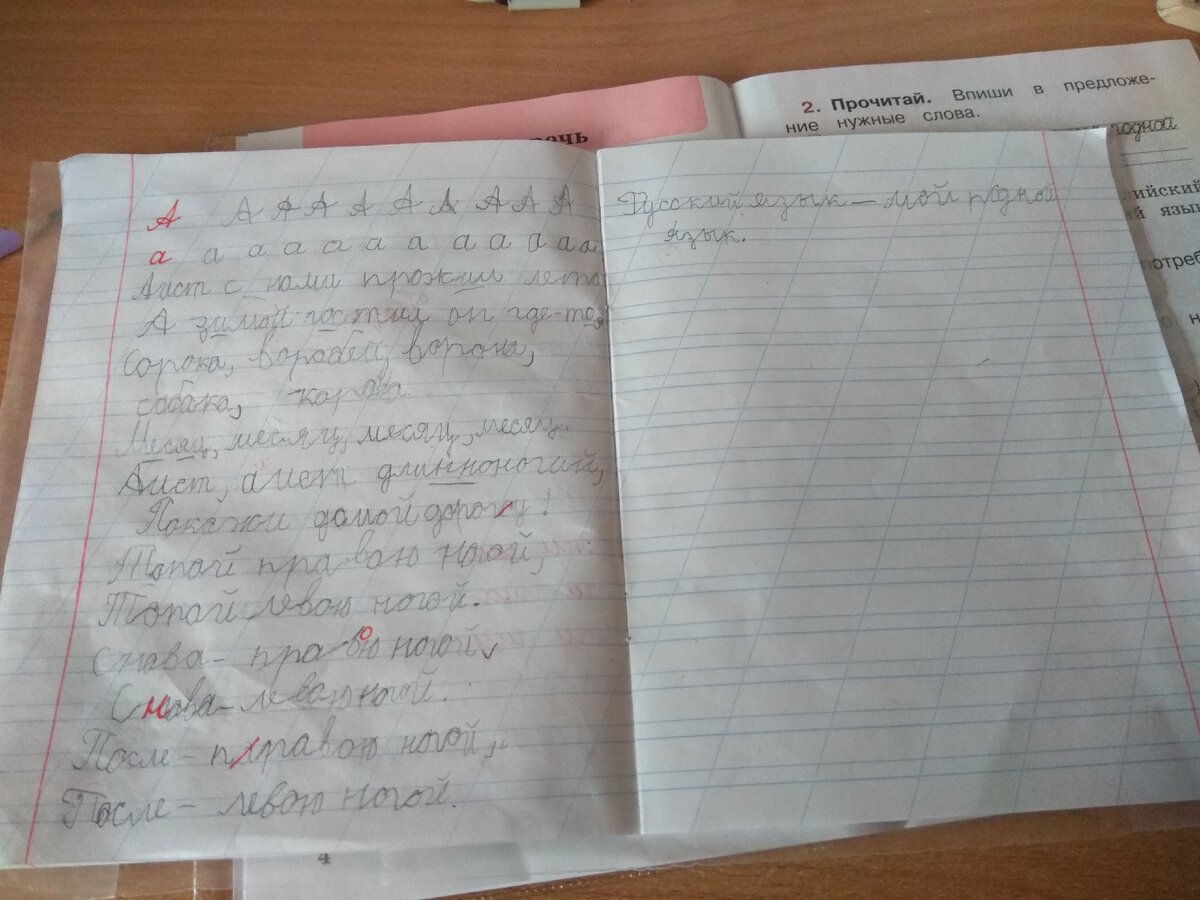 речь
2. Прочитай. Впиши в предложе-
ние нужные слова.
родной
ийский
й язы
отреб
А А А А А А А А А А
а а а а а а а а а а а а
Аист с нами прожил лето,
А зимой гостил он где-то.
Сорока, воробей, ворона,
собака, корова.
Месяц, месяц, месяц, месяц.
Аист, аист длинноногий,
Покажи домой дорогу!
Топай правою ногой,
Топай левою ногой.
Снова - правою ногой,
Снова - левою ногой.
После - правою ногой,
После - левою ногой.
4
Русский язык — мой родной
язык.